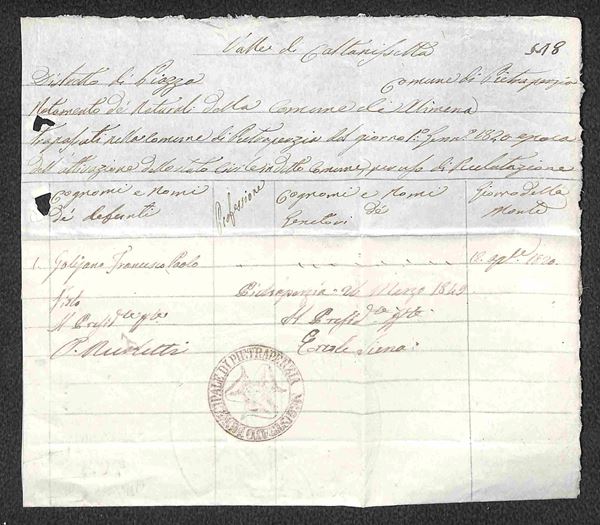 Valle di Caltanissetta 518
Distretto di Piazza Comune di Pietraperzia
Notamento de' Naturali della Comune di Alimena
Trapassati nella Comune di Pietraperzia dal giorno 1° Genn° 1820 epoca
dell'attivazione dello stato Civile in detto Comune, per uso di Reclutazione
Cognomi e Nomi de' defunti
Professione
Cognomi e Nomi de' Genitori
Giorno della Morte
1. Francesco Paolo 1820
Visto Pietraperzia 26 Marzo 1849
Il Presid.te Il Presid.te
P. Ercole Siena
MAGISTRATO MUNICIPALE DI PIETRAPERZIA